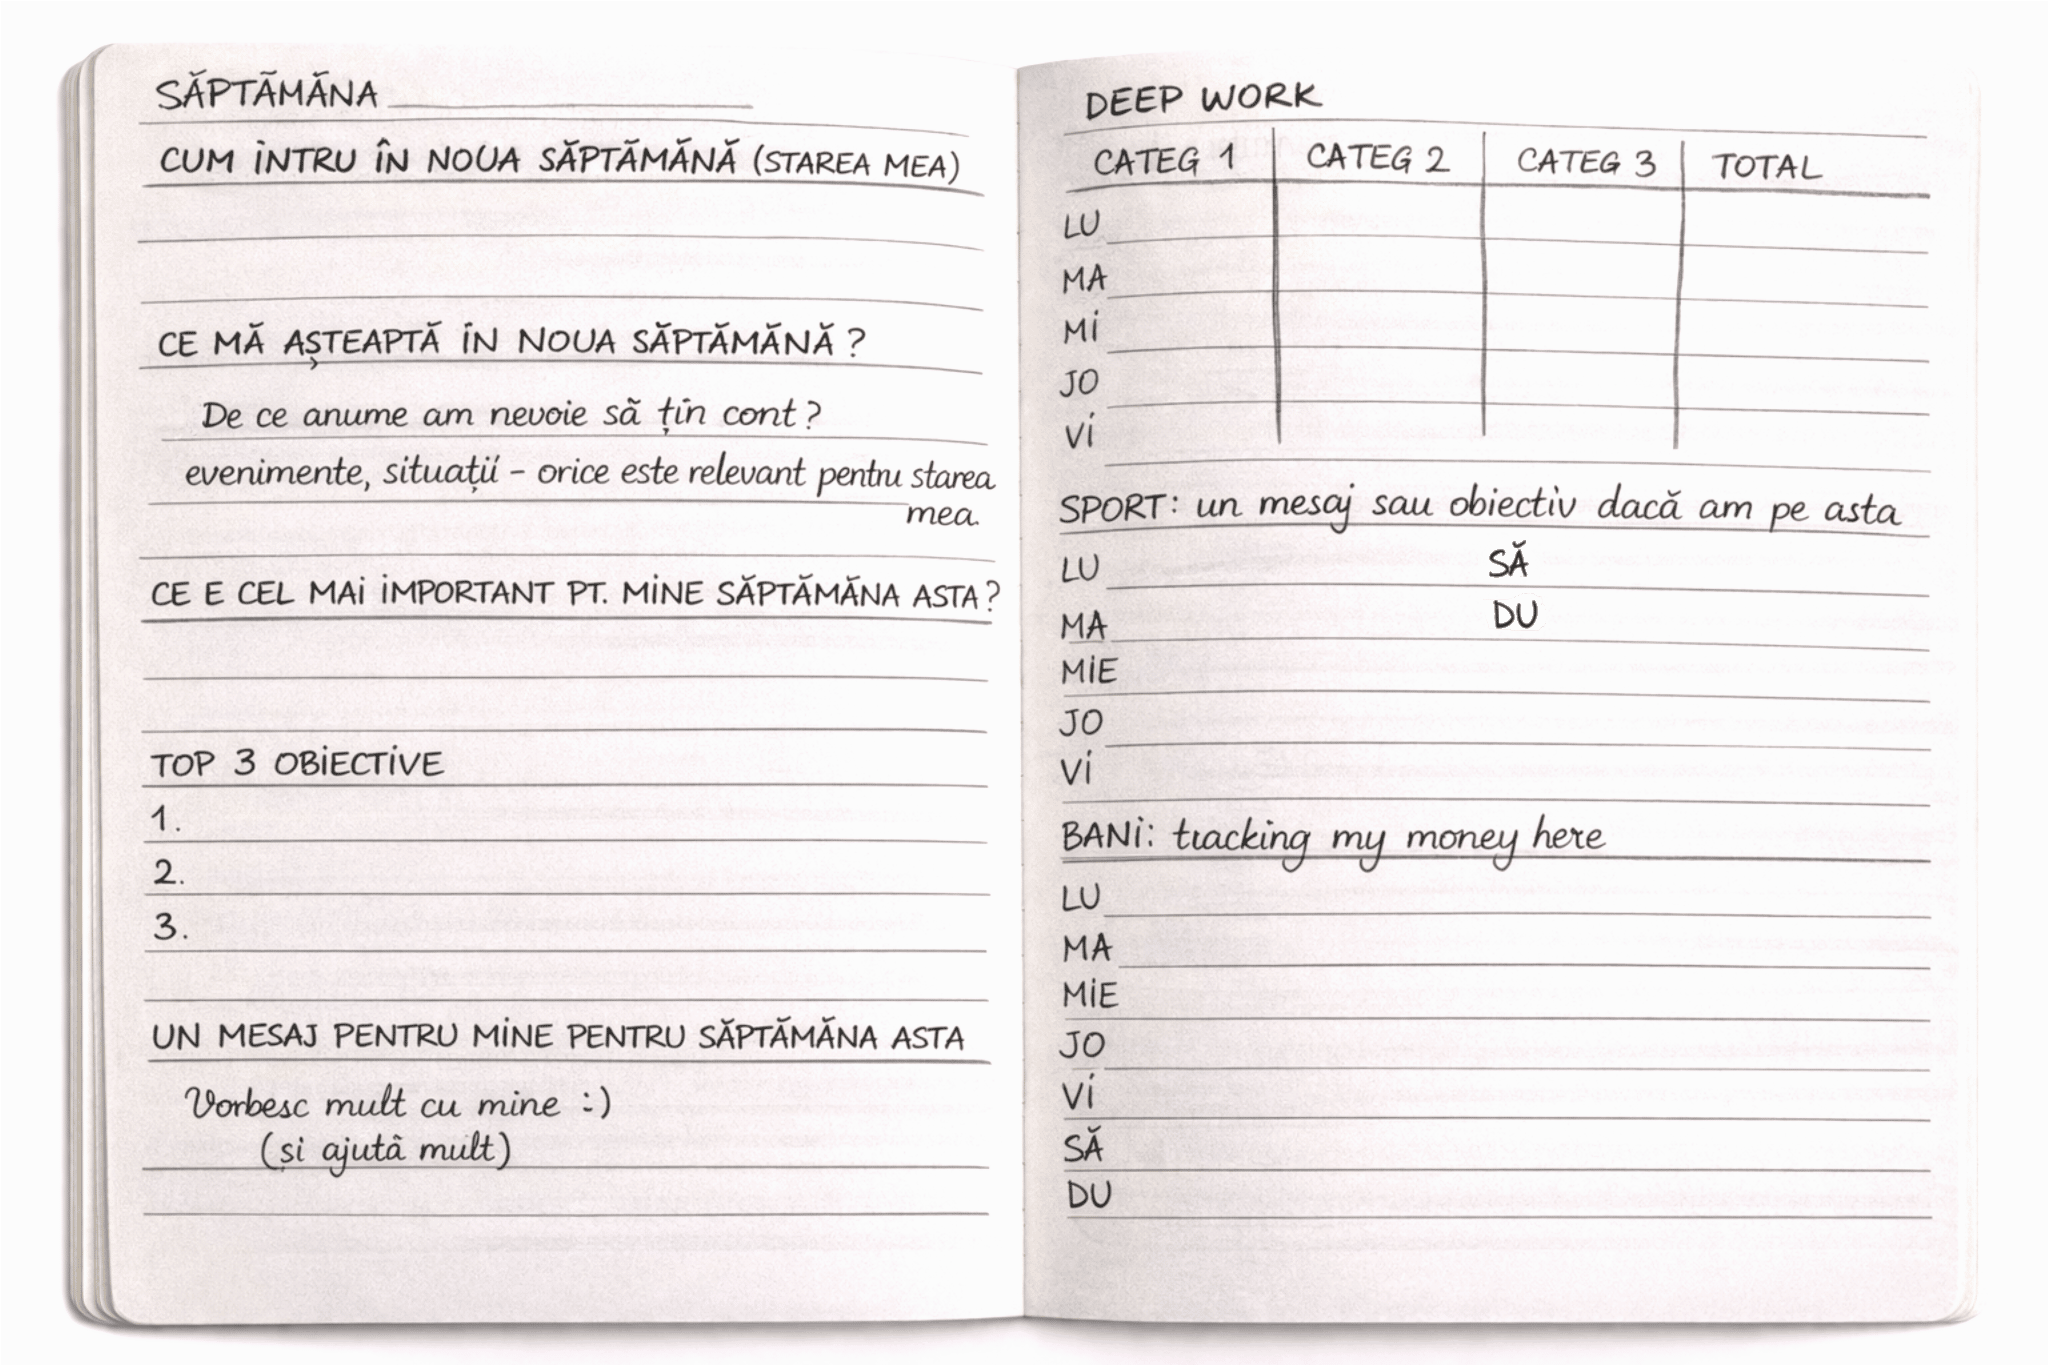 SĂPTĂMĂNA
CUM INTRU ÎN NOUA SĂPTĂMĂNĂ (STAREA MEA)
CE MĂ AȘTEAPTĂ IN NOUA SĂPTĂMĂNĂ ?
De ce anume am nevoie să țin cont ?
evenimente, situații - orice este relevant pentru starea
mea.
CE E CEL MAI IMPORTANT PT. MINE SĂPTĂMĂNA ASTA ?
TOP 3 OBIECTIVE
1.
2.
3.
UN MESAJ PENTRU MINE PENTRU SĂPTĂMĂNA ASTA
Vorbesc mult cu mine :)
(și ajută mult)
DEEP WORK
CATEG 1 CATEG 2 CATEG 3 TOTAL
LU
MA
MI
JO
VI
SPORT: un mesaj sau obiectiv dacă am pe asta
LU SĂ
MA DU
MIE
JO
VI
BANI: tracking my money here
LU
MA
MIE
JO
VI
SĂ
DU